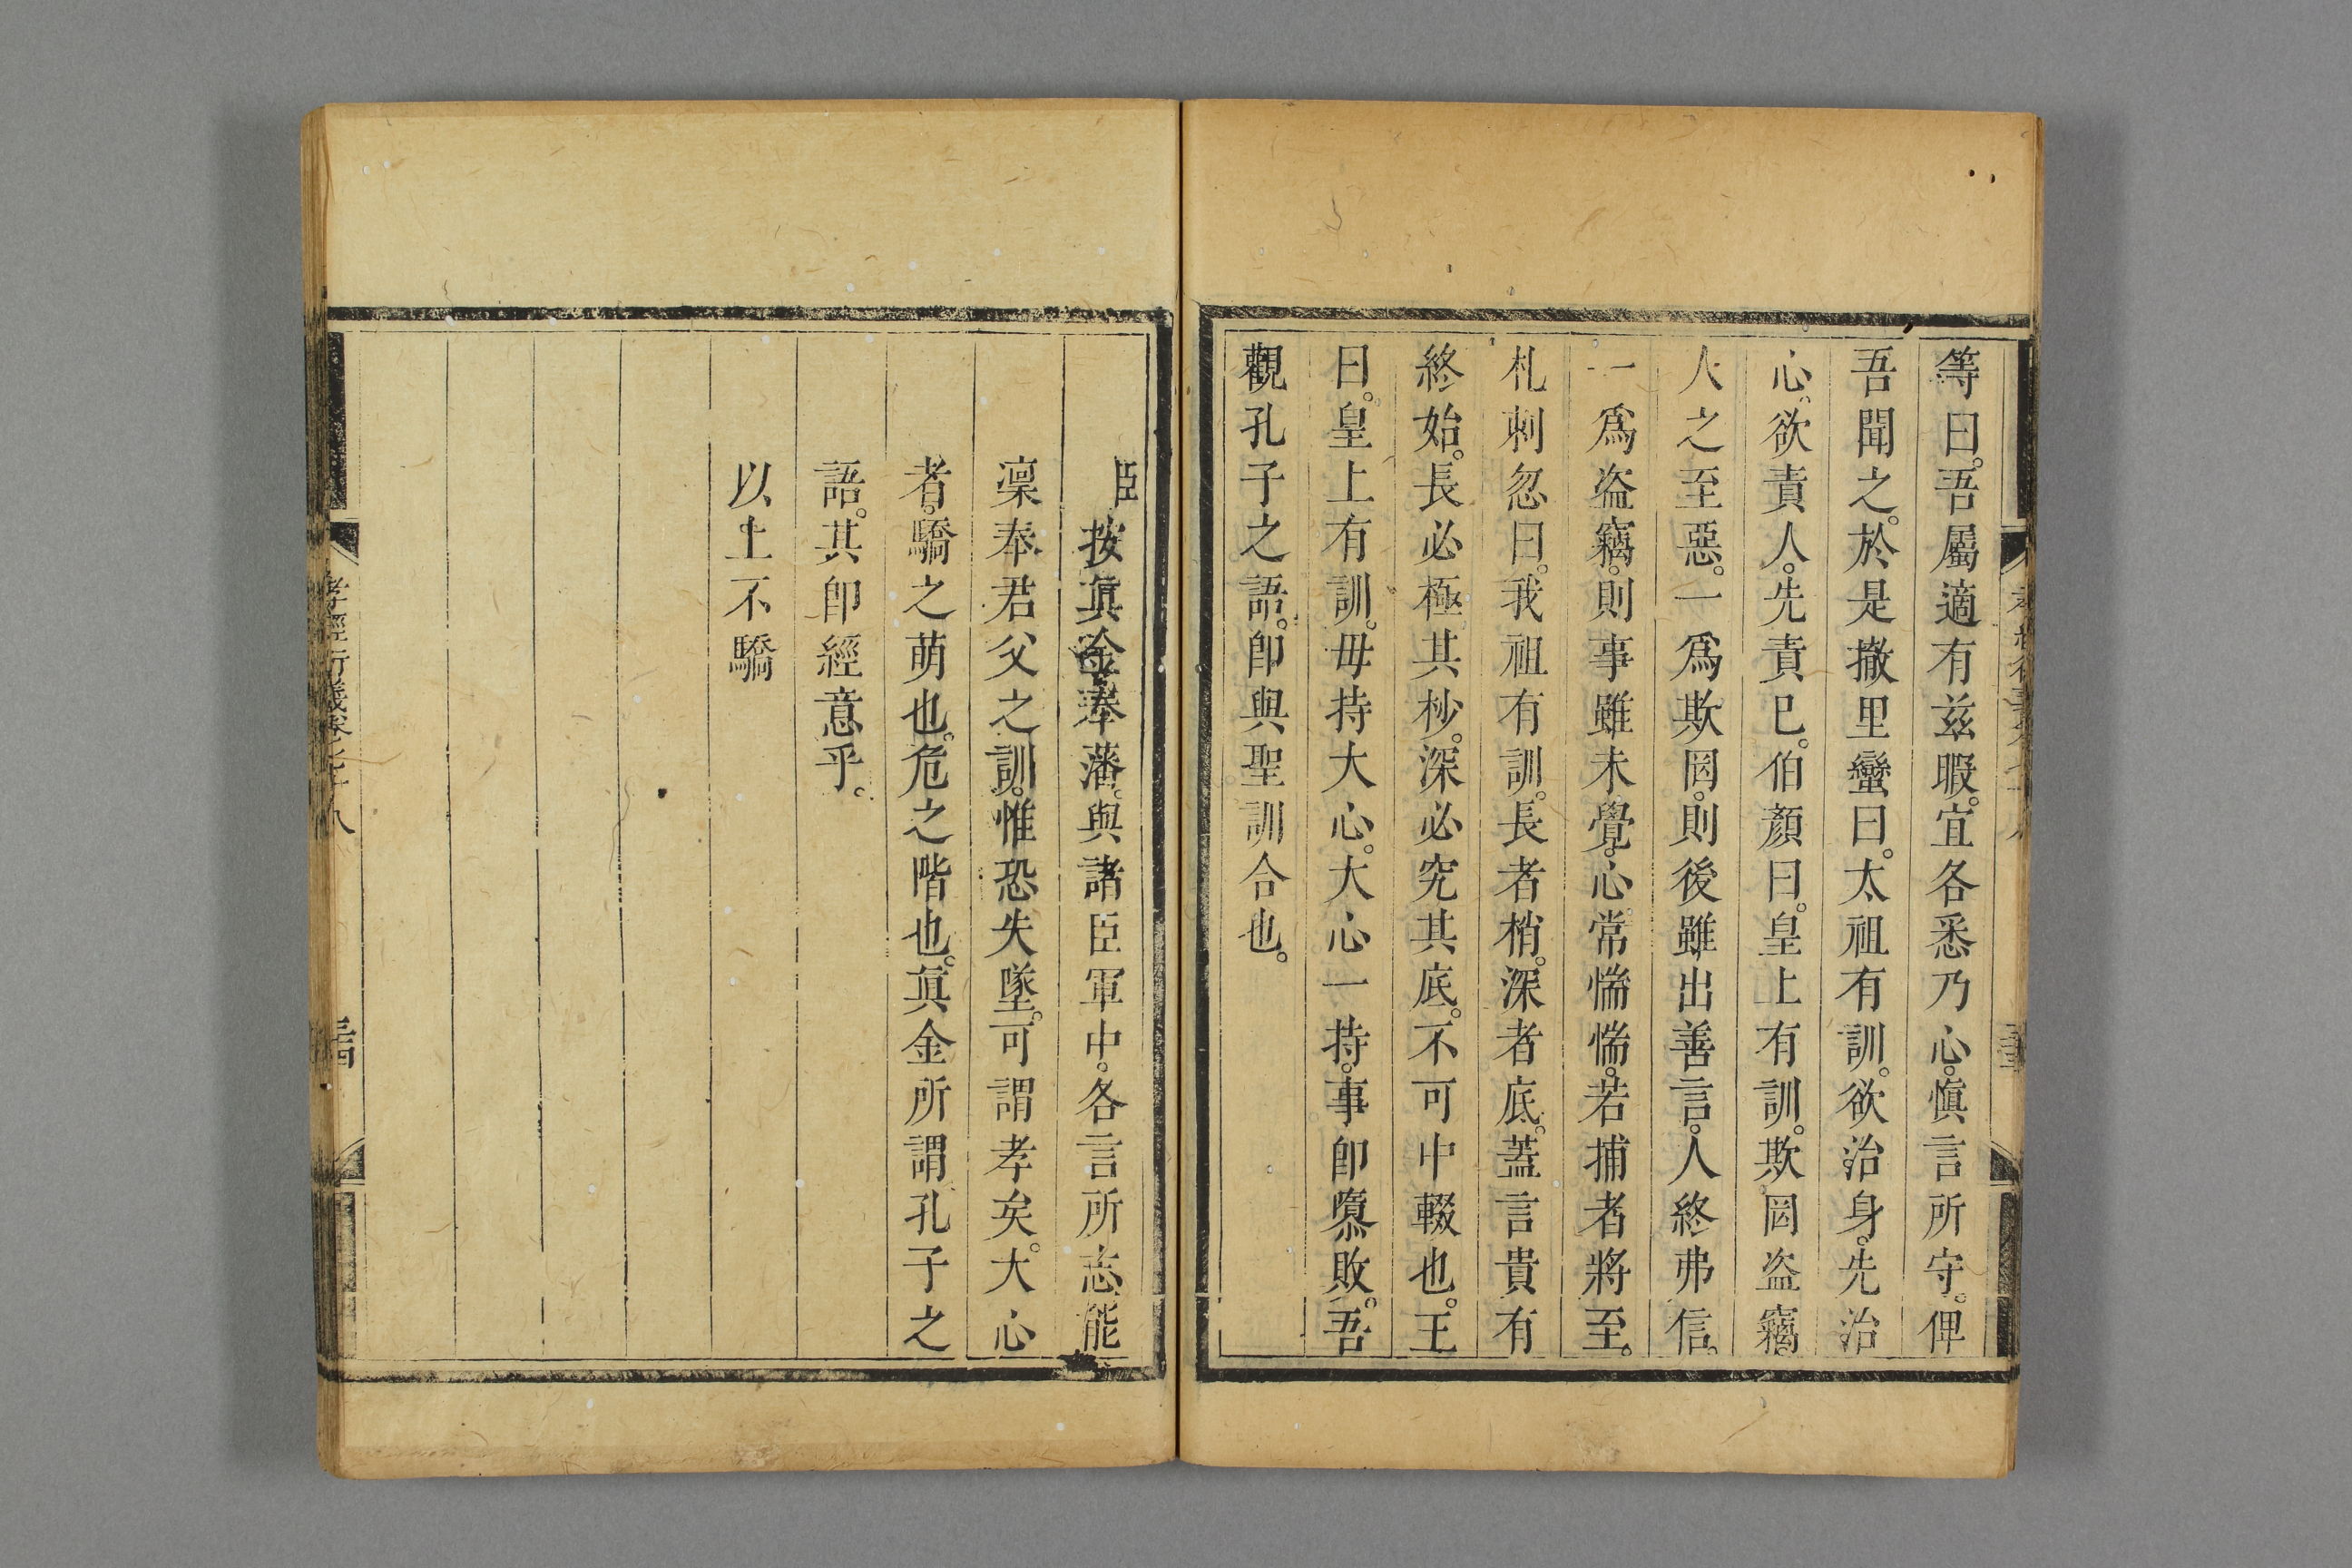 等曰。吾屬適有茲暇。宜各悉乃心。慎言所守。俾
吾聞之。於是撤里蠻曰。太祖有訓。欲治身。先治
心。欲責人。先責已。伯顏曰。皇上有訓。欺罔盜竊。
人之至惡。一爲欺罔。則後雖出善言。人終弗信。
一爲盜竊。則事雖未覺。心常惴惴。若捕者將至。
札刺忽曰。我祖有訓。長者梢。深者底。蓋言貴有
終始。長必極其杪。深必究其底。不可中輟也。王
曰。皇上有訓。毋持大心。大心一持。事卽隳敗。吾
觀孔子之語。卽與聖訓合也。
臣按眞金奉藩。與諸臣軍中。各言所志。能
凜奉君父之訓。惟恐失墜。可謂孝矣。大心
者。驕之萌也。危之階也。眞金所謂孔子之
語。其卽經意乎。
以上不驕
孝經衍義卷之十八